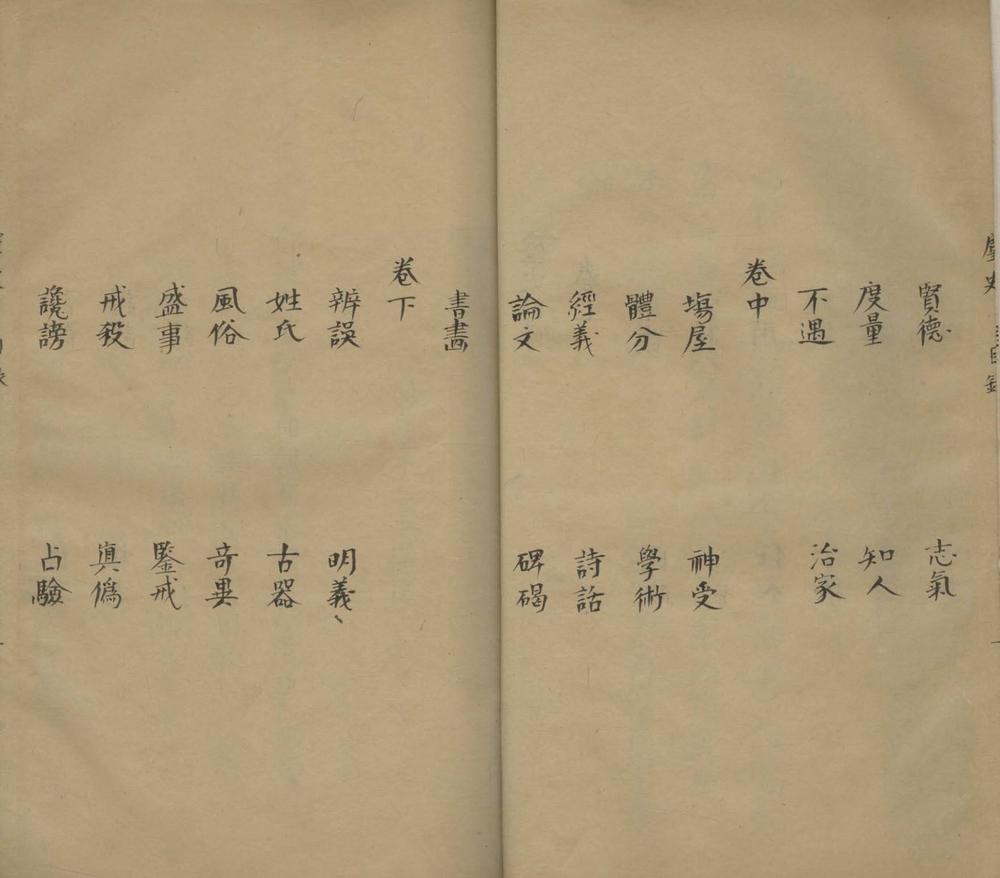 賢德　志氣
度量　知人
不遇　治家
卷中
塲屋　神受
體分　學術
經義　詩話
論文　碑碣
書畫
卷下
辨誤　明義
姓氏　古器
風俗　竒異
盛事　鑒戒
戒殺　眞僞
讒謗　占驗